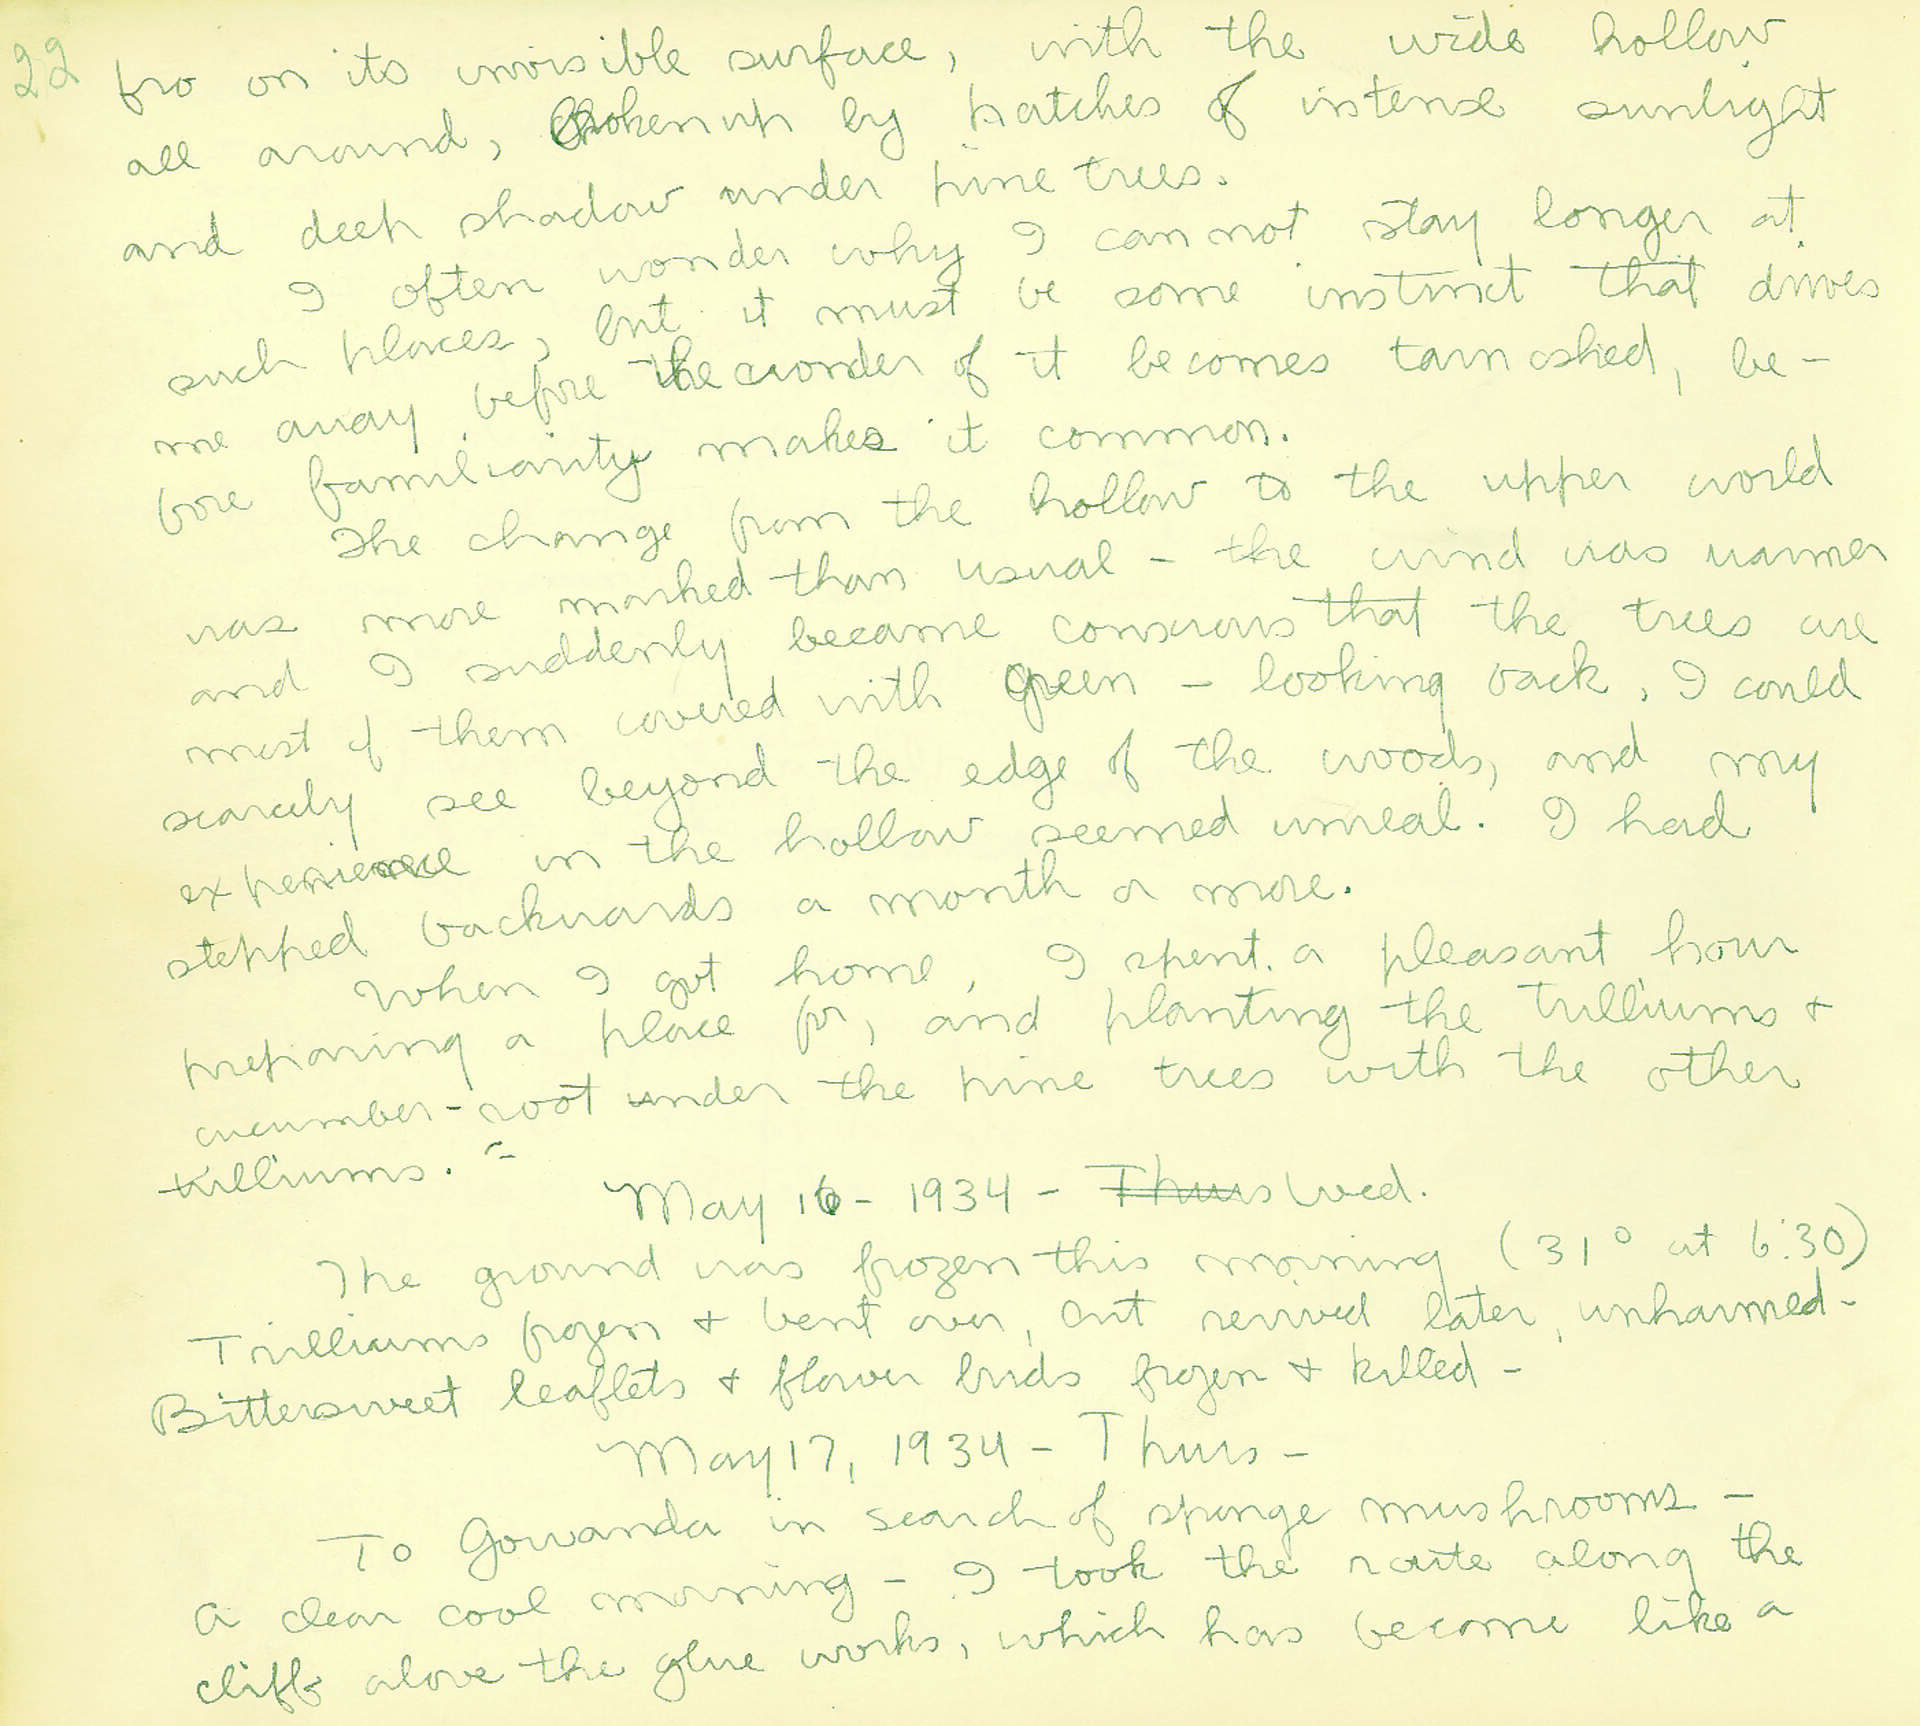 22
fro on its invisible surface, with the wide hollow
all around, broken up by patches of intense sunlight
and deep shadow under pine trees.
I often wonder why I cannot stay longer at
such places, but it must be some instinct that drives
me away before the wonder of it becomes tarnished, be-
fore familiarity makes it common.
The change from the hollow to the upper world
was more marked than usual - the wind was warmer
and I suddenly became conscious that the trees are
most of them covered with green - looking back, I could
scarcely see beyond the edge of the woods, and my
experience in the hollow seemed unreal. I had
stepped backwards a month or more.
When I got home, I spent a pleasant hour
preparing a place for, and planting the Trilliums +
cucumber-root under the pine trees with the other
trilliums. -
May 16 - 1934 - Thurs Wed.
The ground was frozen this morning (31° at 6:30)
Trilliums frozen + bent over, but revived later, unharmed -
Bittersweet leaflets + flower buds frozen + killed -
May 17, 1934 - Thurs -
To Gowanda in search of sponge mushrooms -
A clear cool morning - I took the route along the
cliffs above the glue works, which has become like a